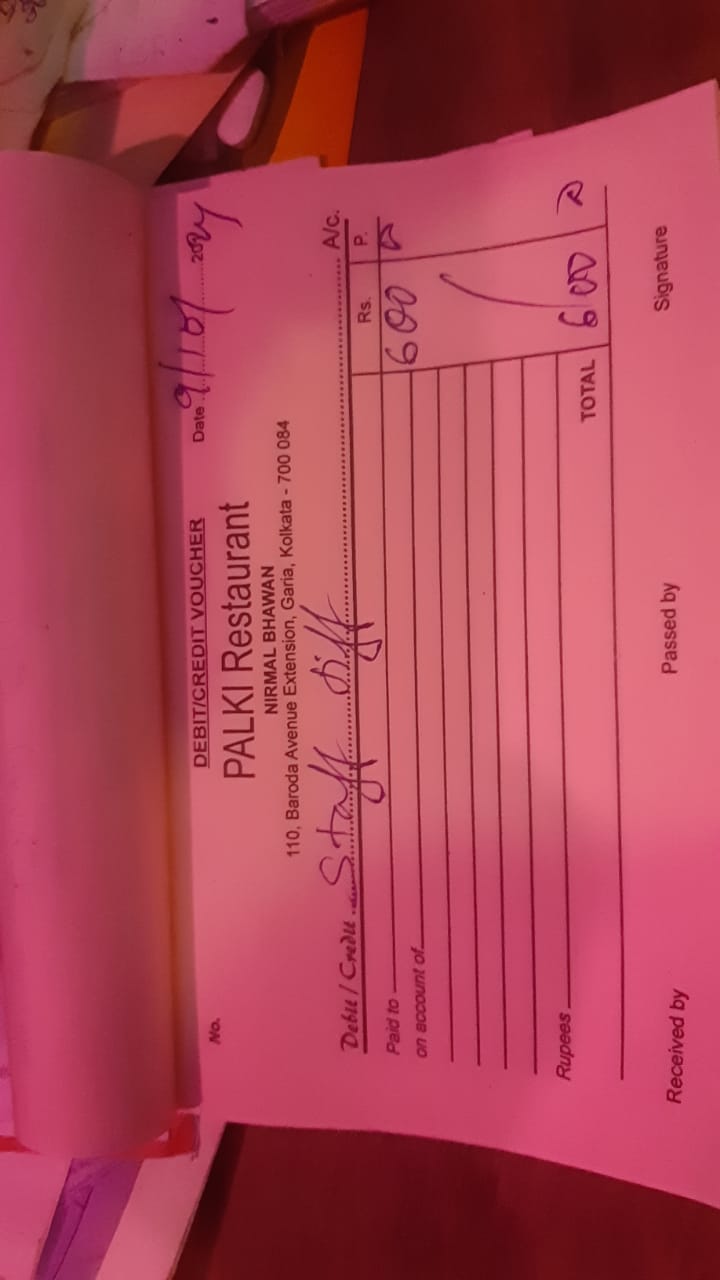 DEBIT/CREDIT VOUCHER
No.
Date 9/10/2024
PALKI Restaurant
NIRMAL BHAWAN
110, Baroda Avenue Extension, Garia, Kolkata - 700 084
Debit / Credit Staff diff A/c.
Rs. P.
Paid to 600
on account of
Rupees TOTAL 600
Received by Passed by Signature